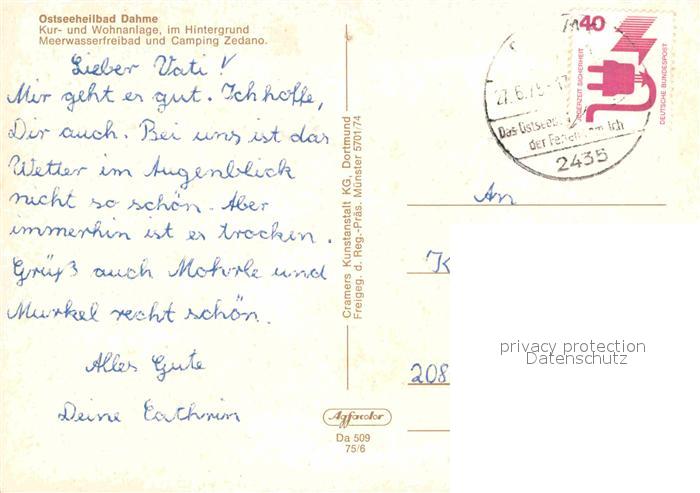 Ostseeheilbad Dahme
Kur- und Wohnanlage, im Hintergrund
Meerwasserfreibad und Camping Zedano.
Lieber Vati!
Mir geht es gut. Ich hoffe,
Dir auch. Bei uns ist das
Wetter im Augenblick
nicht so schön. Aber
immerhin ist es trocken.
Grüß auch Mohrle und
Murkel recht schön.
Alles Gute
Deine Cathrin
Cramers Kunstanstalt KG, Dortmund
Freigeg. d. Reg.-Präs. Münster 5701/74
Agfacolor
Da 509
75/6
27.6.75
Das Ostseebad
der Ferien Ich
2435
40
JEDERZEIT SICHERHEIT
DEUTSCHE BUNDESPOST
An
K
208
privacy protection
Datenschutz